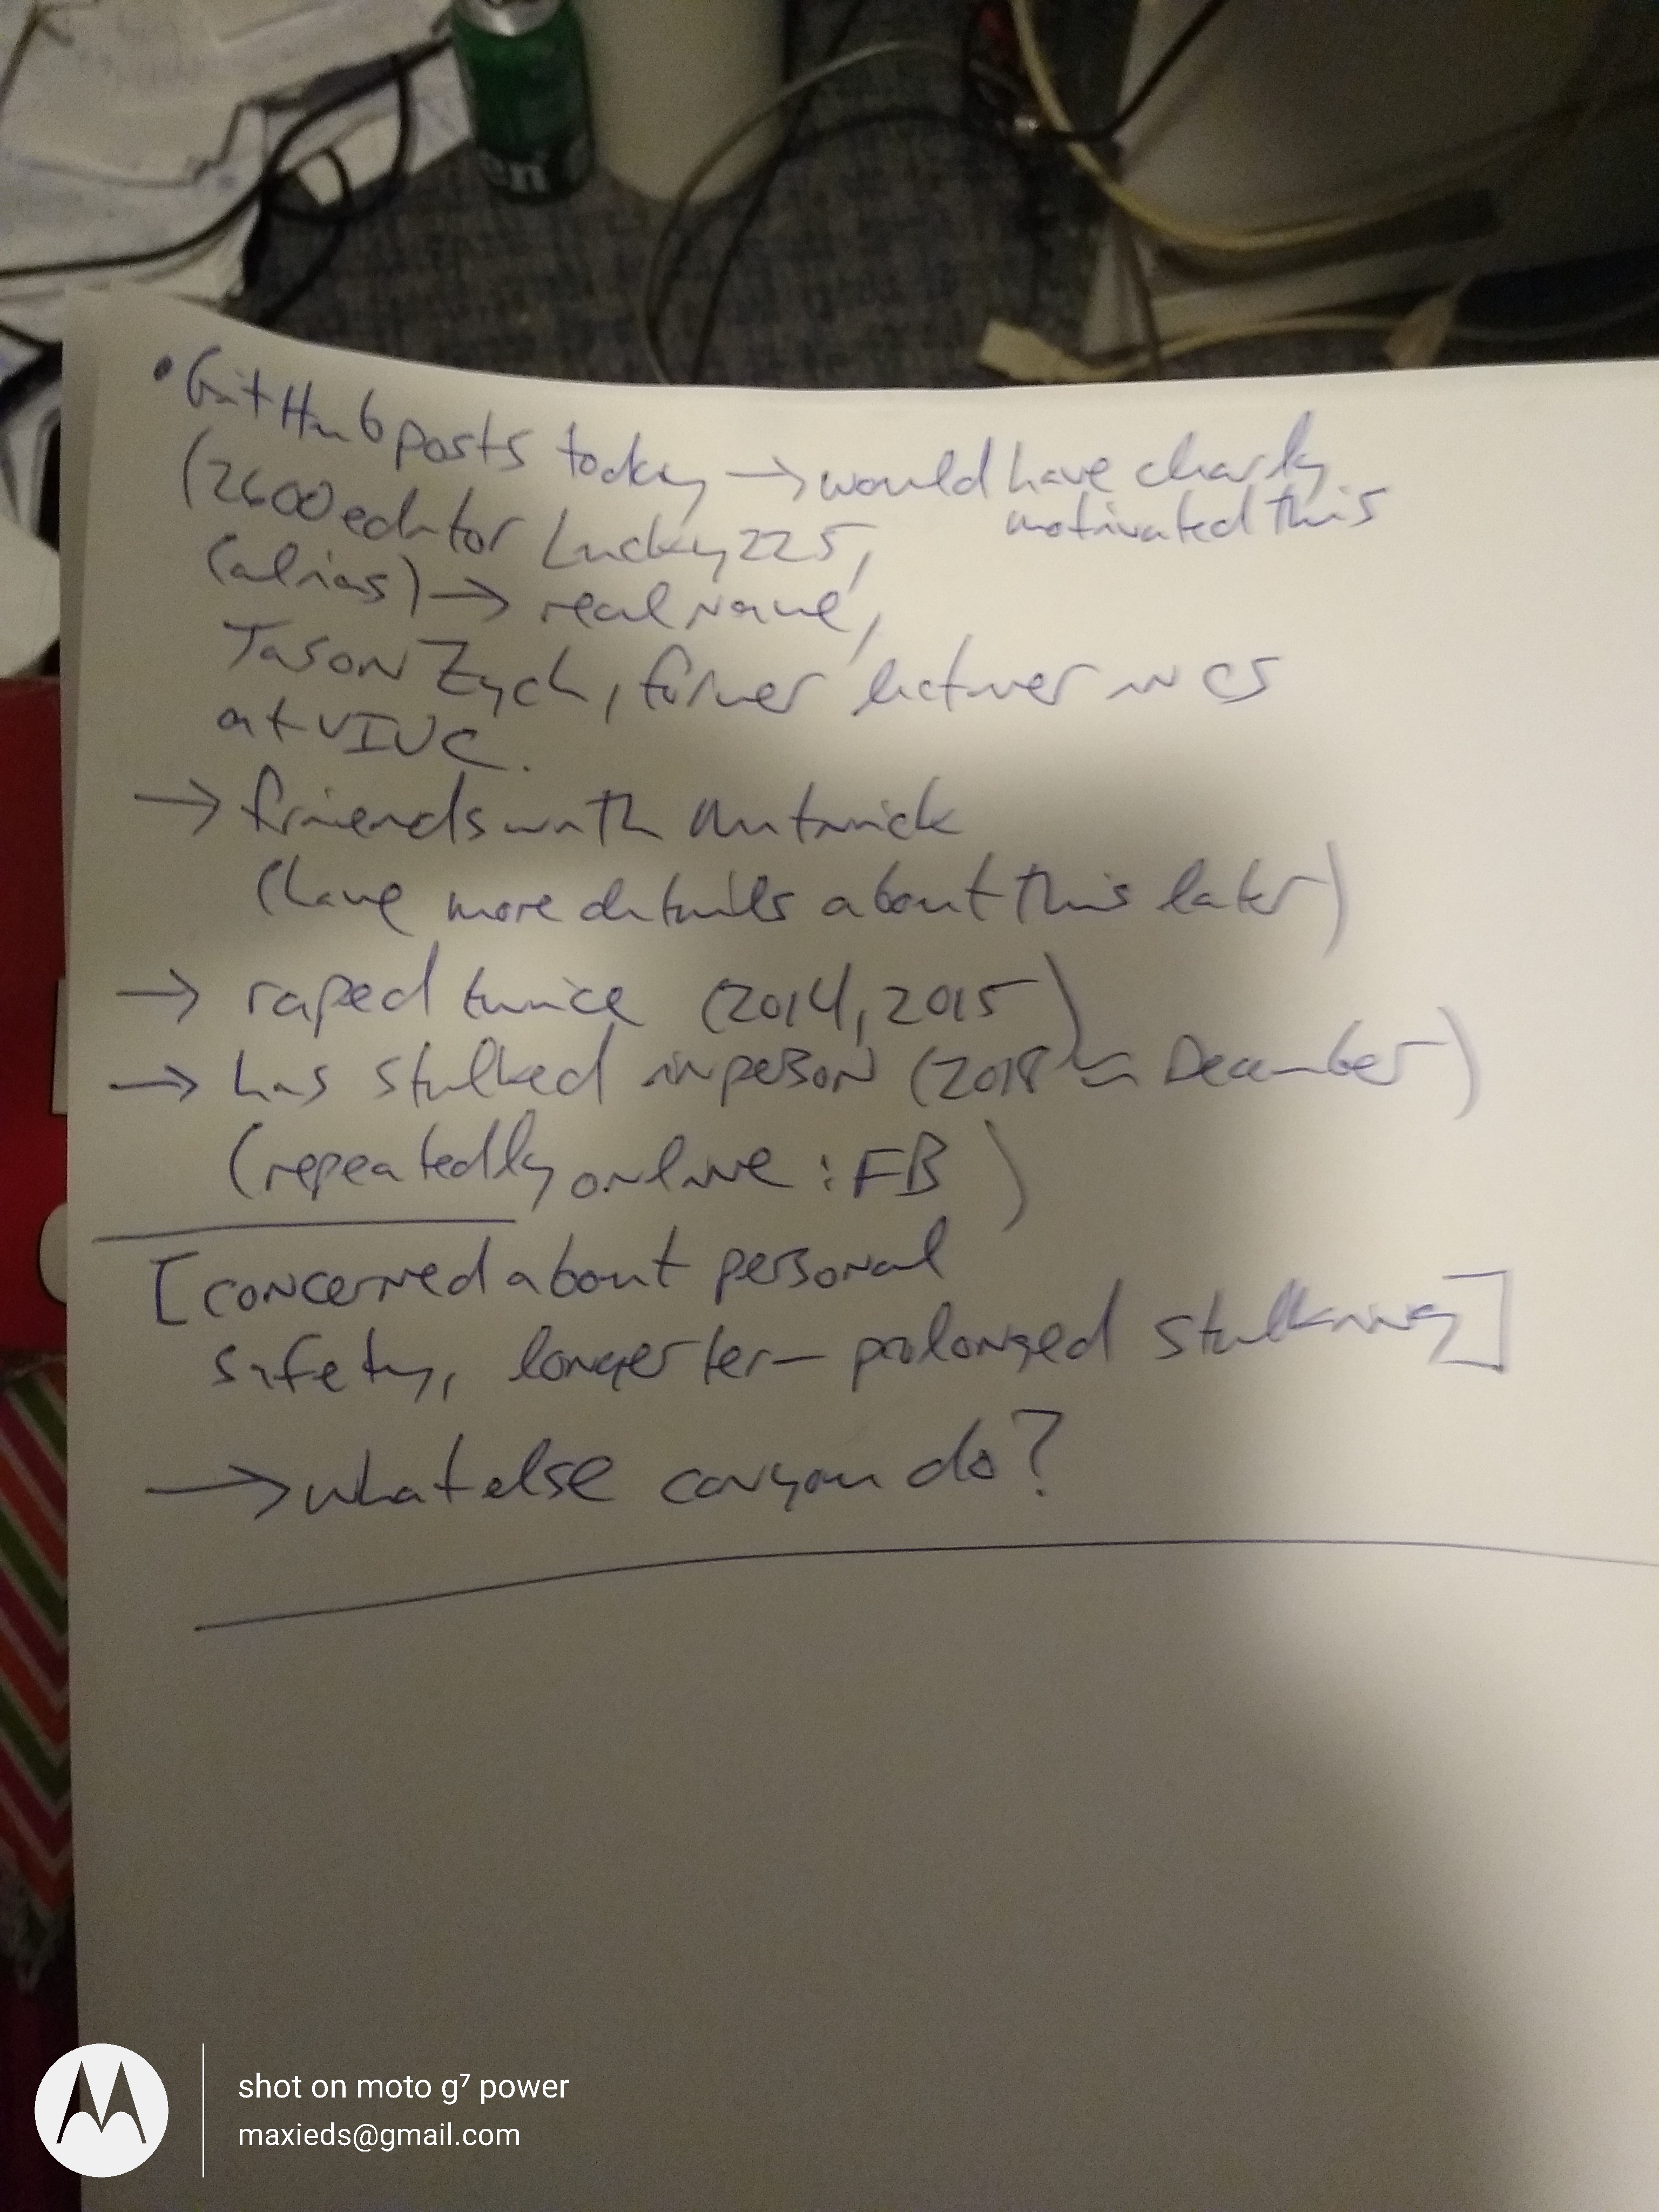 en
• GitHub posts today → would have clearly
motivated this
(2600 editor Lucky225,
(alias) → real name,
Jason Zych, former lecturer in CS
at UIUC.
→ friends with
(have more details about this later)
→ raped twice (2014, 2015)
→ has stalked in person (2018 ≈ December)
(repeatedly online: FB)
[concerned about personal
safety, longer ter— prolonged stalking]
→ what else can you do?
shot on moto g⁷ power
maxieds@gmail.com